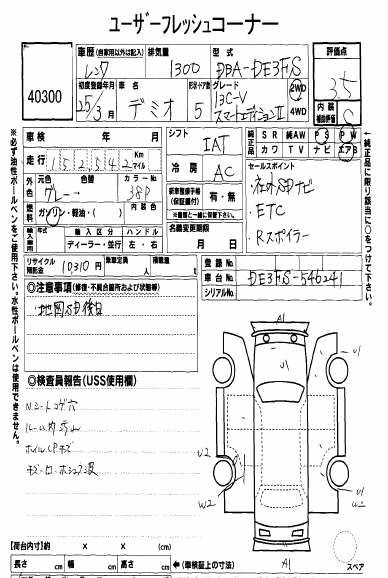 ユーザーフレッシュコーナー
40300
車歴 (自家用以外は記入)
レンタ
排気量
1300
型式
DBA-DE3FS
評価点
3.5
初度登録年月
25/3月
車名
デミオ
形状・ドア数
5
グレード
13C-V
スマートエディションⅡ
2WD
4WD
内装
補助評価
車検 年 月
シフト
IAT
純正品
SR 純AW PS PW
カワ TV ナビ エアB
走行
152542 Km マイル
冷房
AC
セールスポイント
社外SDナビ
ETC
Rスポイラー
外色
元色
グレー
色替
カラーNo
38P
内装色
燃料
ガソリン・軽油・( )
新車整備手帳
(保証書付)
有・無
※書類と一緒に保管下さい。
輸入車用
年式
輸入区分
ディーラー・並行
ハンドル
左・右
名義変更期限
月 日
リサイクル
預託金
10310円
乗車定員
人
積載量
t
登録No
車台No
DE3FS-546241
シリアルNo
◎注意事項 (修復・不具合箇所および状態等)
地図SD後日
◎検査員報告 (USS使用欄)
Nシートコゲ穴
ルーム内汚れ
A1
U1
U1
U2
W2
U1
A1
スペア
【荷台内寸】約 X X (cm)
長さ cm 幅 cm 高さ cm
←(車検証上の寸法)
※必ず油性ボールペンをご使用下さい。水性ボールペンは使用できません。
※純正品に限り該当に○をつけて下さい。